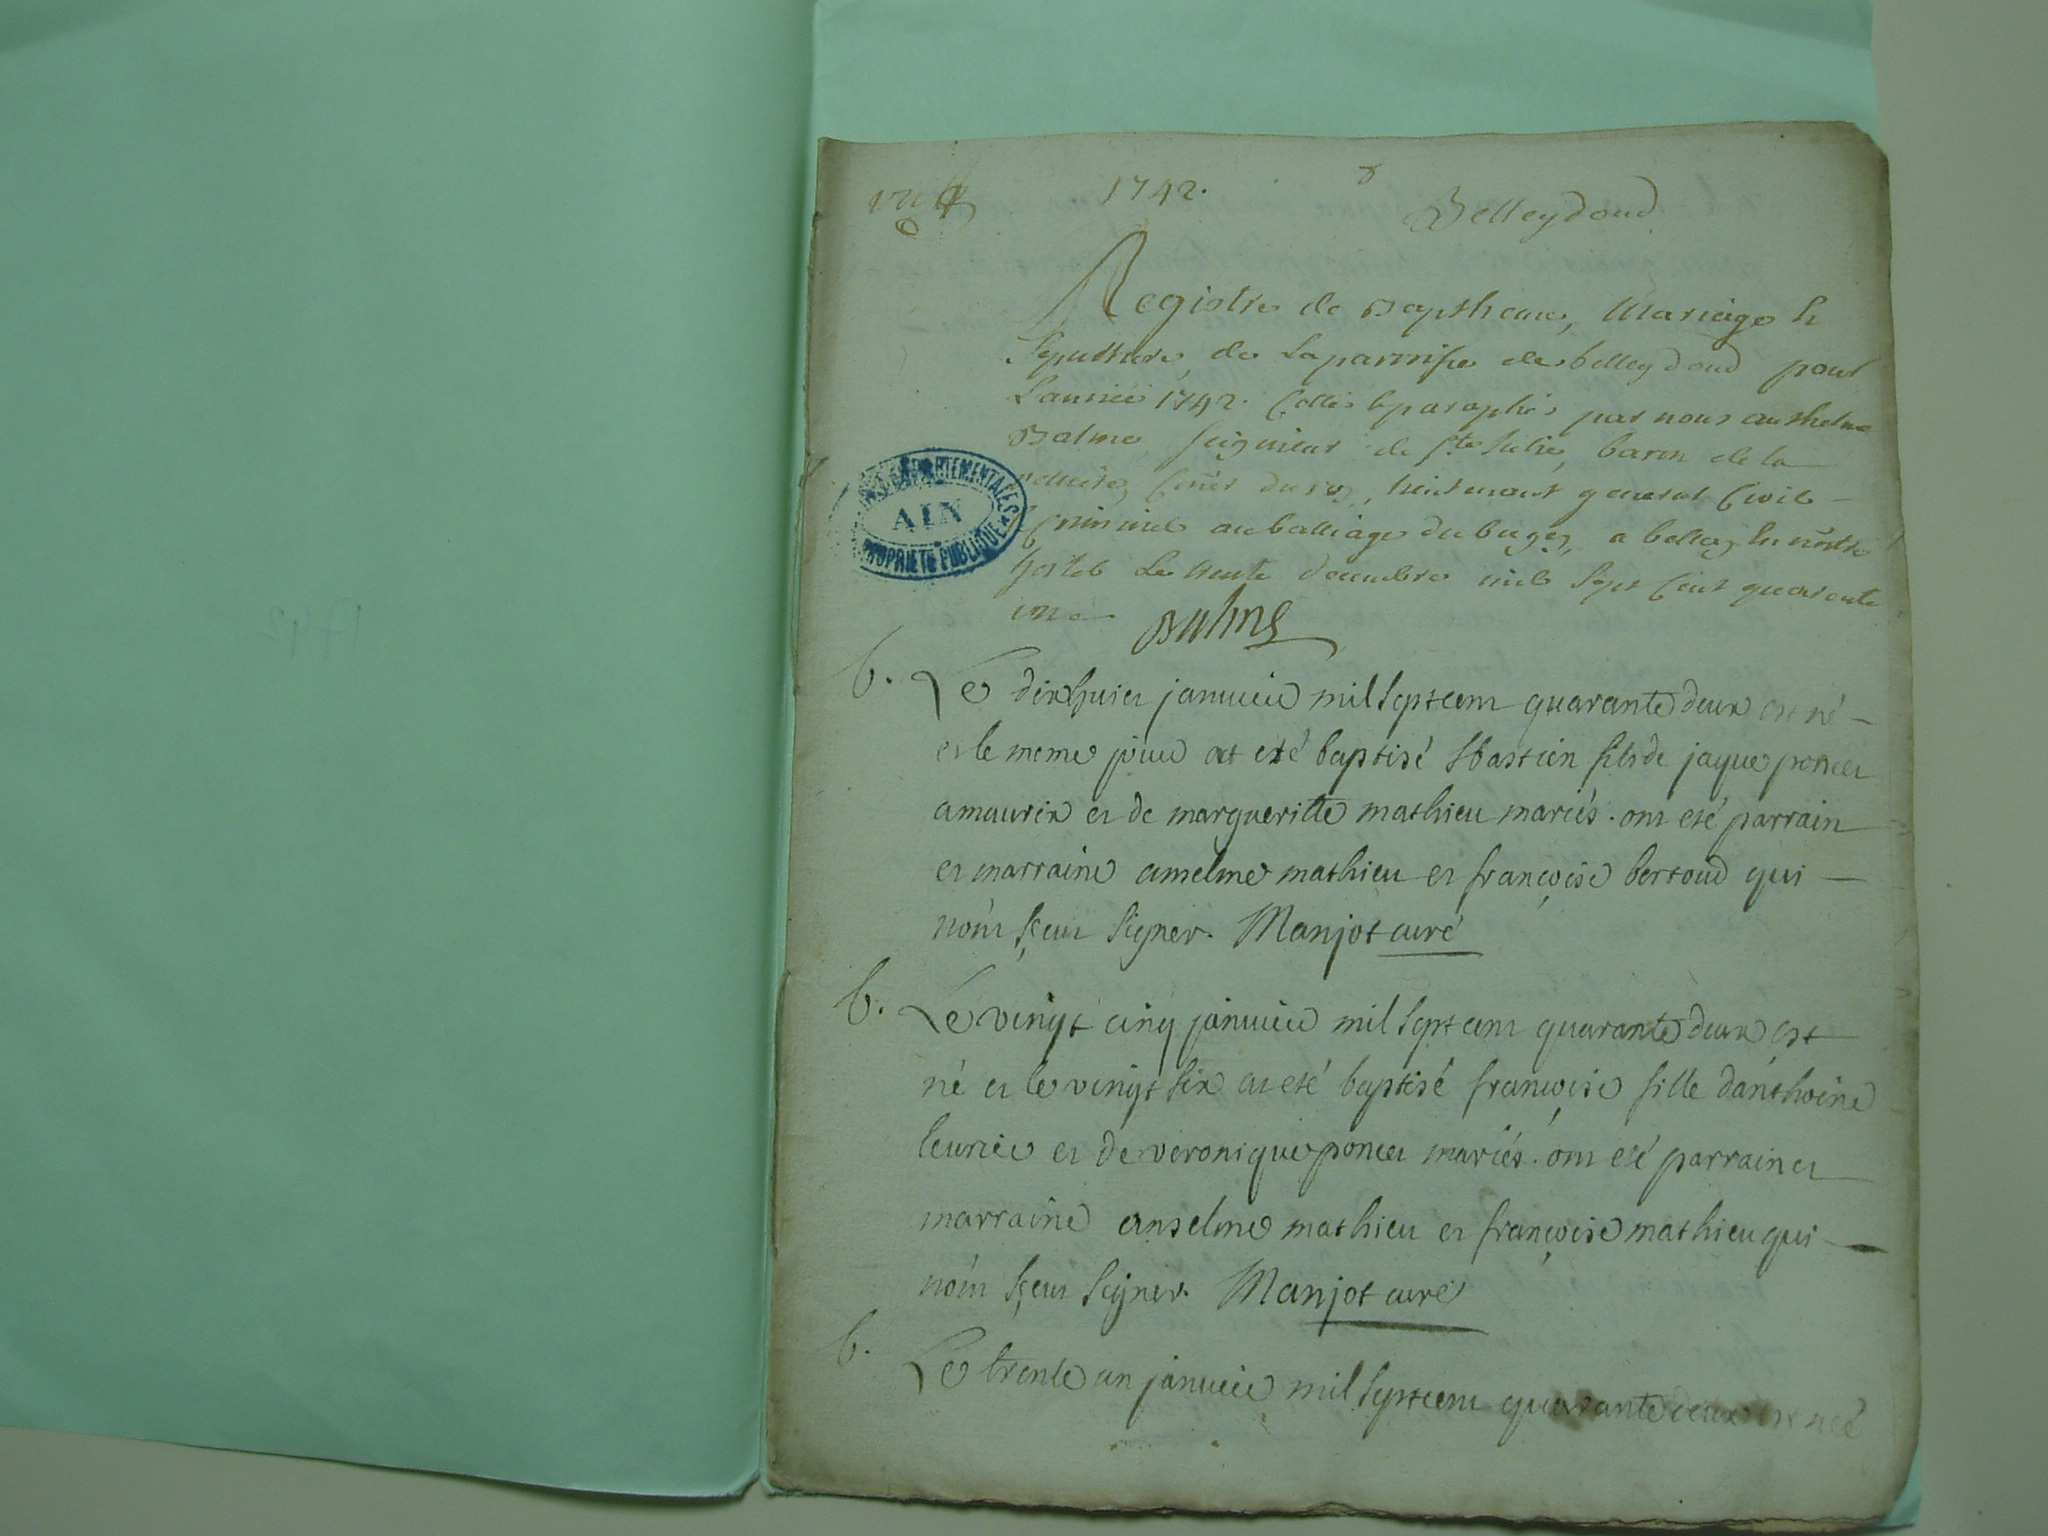 1742.
Belleydoud
Registre de Bapthemes, Mariage &
Sepulture, de La parroisse de belleydoud pour
L'année 1742. Cottés & paraphés par nous anthelme
Balme, seigneur de Ste Julie, baron de la
du roy, lieutenant general Civil
Criminel au balliage du bugey, a belley en nôtre
hostel Le trente decembre mil sept cent quarente
une Balme
ARCHIVES DÉPARTEMENTALES
AIN
PROPRIÉTÉ PUBLIQUE
b. Le dixhuict janvier mil sept cent quarante deux est né
et le meme jour at eté baptisé sbastien fils de jaque poncet
amaurix et de margueritte mathieu mariés. ont eté parrain
et marraine anselme mathieu et françoise bertoud qui
nònt sçeut signer. Manjot curé
b. Le vingt cinq janvier mil sept cent quarante deux est
né et le vingt six at eté baptisé françoise fille danthoine
et de veronique poncet mariés. ont eté parrain et
marraine anselme mathieu et françoise mathieu qui
nònt sçeut signer. Manjot curé
b. Le trente un janvier mil sept cent quarante deux est neé
1742